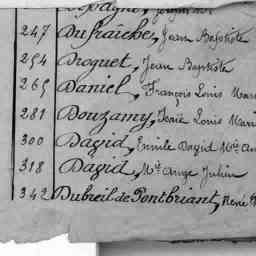 247 Dufraîche, Jean Baptiste
254 Droguet, Jean Baptiste
265 Daniel, François Louis
281 Douzamy, Louis
300 David, Emile David
318 David, Mie Ange Julien
342 Dubreil de Pontbriant, René